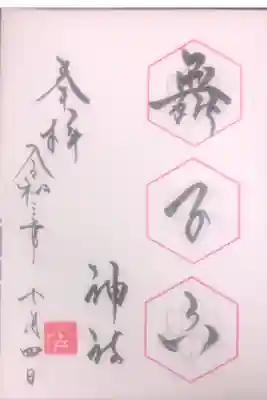 舞子六
神社
奉拝
令和三年
十月四日